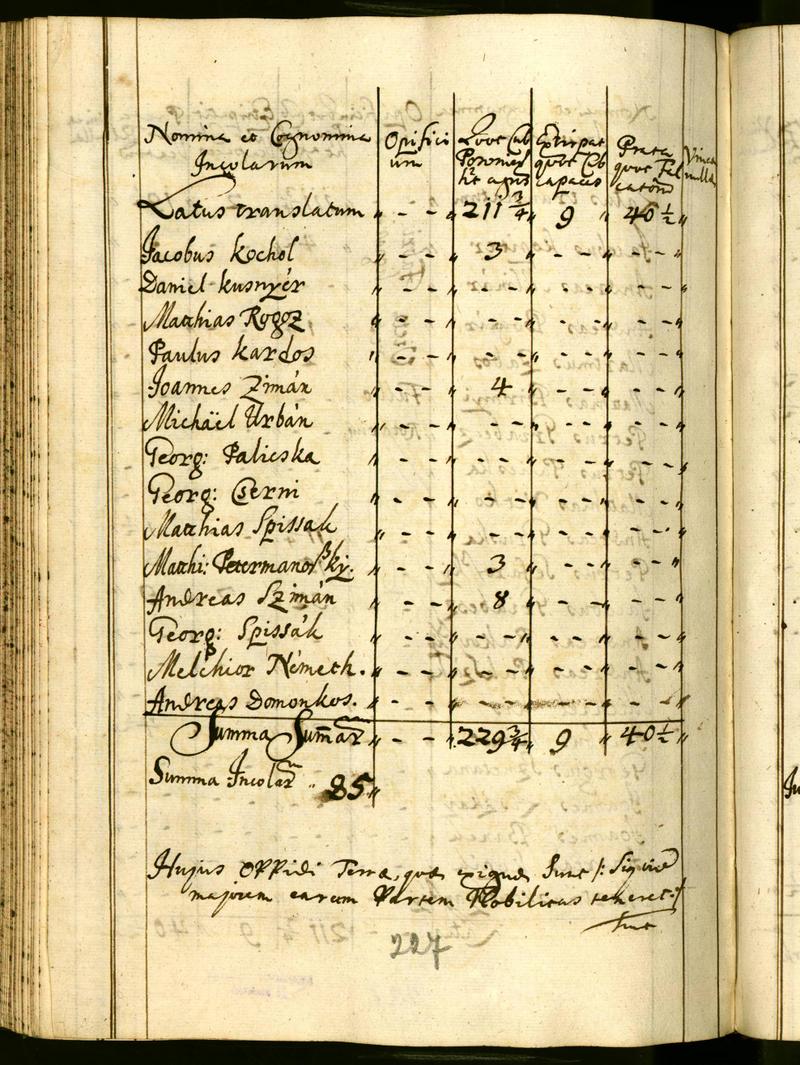 Nomina et Cognomina Incolarum
Opificium
Prata
Vinea nulla
Latus translatum " - - " 211 3/4 " 9 " 40 1/2 "
Jacobus Kochol " - - " 3 " - - " - - "
Daniel Kusnyér " - - " - - " - - " - - "
Matthias Rogoz " - - " - - " - - " - - "
Paulus Kardos " - - " - - " - - " - - "
Joannes Zimán " - - " 4 " - - " - - "
Michäel Urbán " - - " - - " - - " - - "
Georg: Palicska " - - " - - " - - " - - "
Georg: Cserni " - - " - - " - - " - - "
Matthias Spissak " - - " - - " - - " - - "
Matthi: Petermanoßky. " - - " 3 " - - " - - "
Andreas Szimán " - - " 8 " - - " - - "
Georg: Spissák " - - " - - " - - " - - "
Melchior Németh. " - - " - - " - - " - - "
Andreas Domonkos. " - - " - - " - - " - - "
Summa Summar " - - " 229 3/4 " 9 " 40 1/2 "
Summa Incolar " 85 "
Hujus Oppidi Terræ, quæ exiguæ sunt /:
majorem earum Partem Nobilitas teneret:/
sunt
227